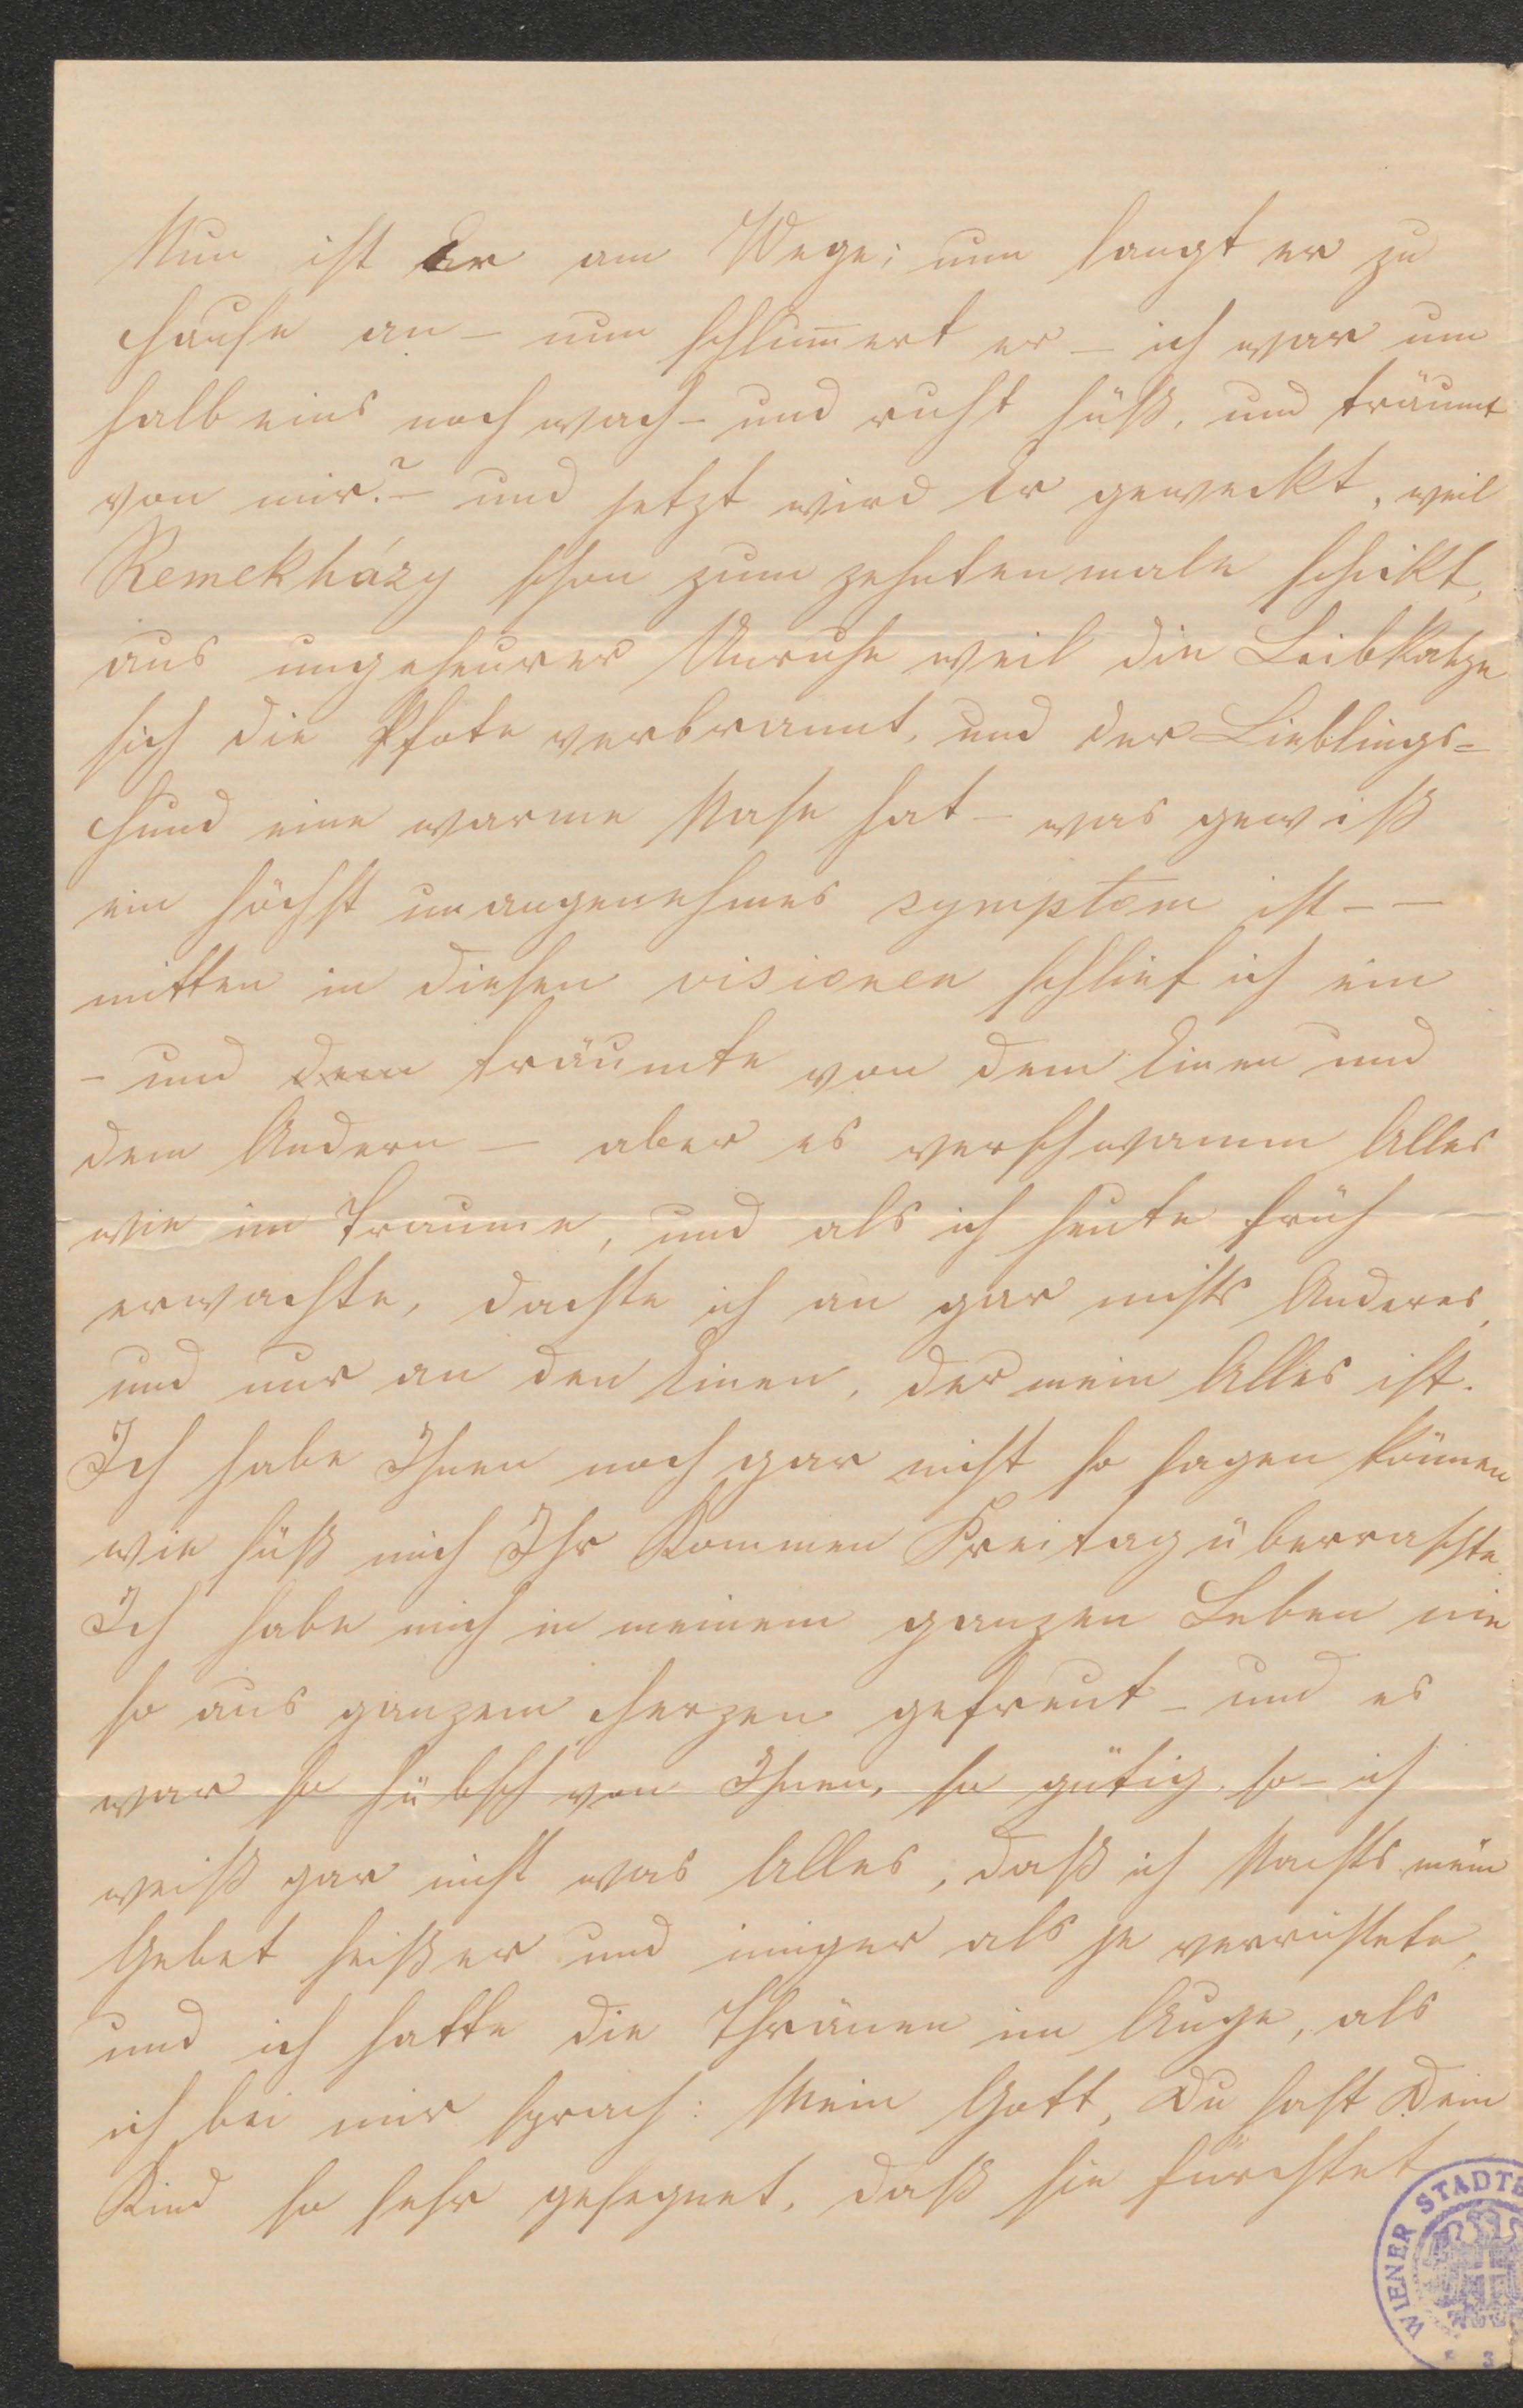 Nun ist Er am Wege; nun langt er zu
Hause an – nun schlummert er – ich war um
halb eins noch wach – und ruht süß, und träumt
von mir.? – und jetzt wird Er geweckt, weil
Remekházy schon zum zehntenmale schickt,
aus ungeheurer Unruhe weil die Leibkatze
sich die Pfote verbrannt, und der Lieblings=
hund eine warme Nase hat – was gewiß
ein höchst unangenehmes symptom ist – –
mitten in diesen visionen schlief ich ein
– und dem träumte von dem Einen und
dem Andern – aber es verschwamm Alles
wie im Traume, und als ich heute früh
erwachte, dachte ich an gar nichts Anderes,
und nur an den Einen, der mein Alles ist.
Ich habe Ihnen noch gar nicht so sagen können
wie süß mich Ihr Kommen Freitag überraschte.
Ich habe mich in meinem ganzen Leben nie
so aus ganzem Herzen gefreut – und es
war so hübsch von Ihnen, so gütig, so – ich
weiß gar nicht was Alles, daß ich Nachts mein
Gebet heißer und inniger als je verrichtete,
und ich hatte die Thränen im Auge, als
ich bei mir sprach: Mein Gott, Du hast Dein
Kind so sehr gesegnet, daß sie fürchtet
WIENER STADTB